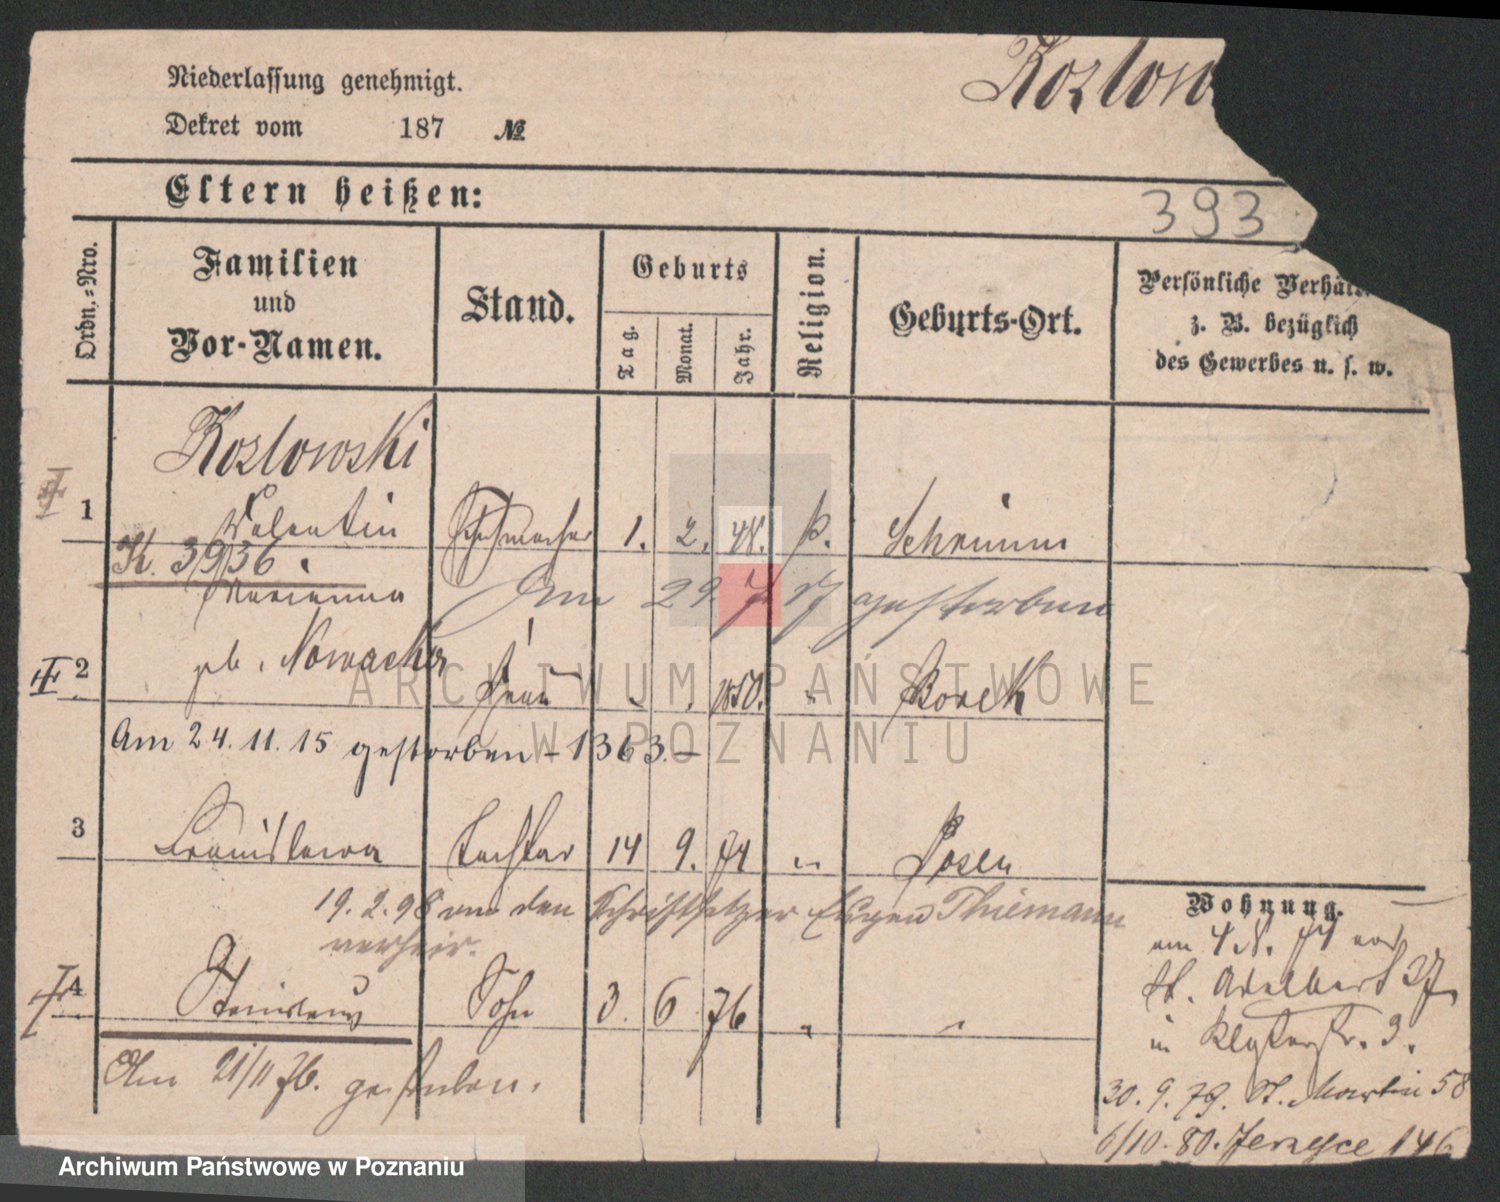 Niederlassung genehmigt.
Dekret vom 187 №
Kozlow
Eltern heißen:
393
Ordn.-Nro.
Familien
und
Vor-Namen.
Stand.
Geburts
Tag.
Monat.
Jahr.
Religion.
Geburts-Ort.
Persönliche Verhält
z. B. bezüglich
des Gewerbes u. s. w.
Kozlowski
1 Valentin Schuhmacher 1. 2. 48. k. Schrimm
K. 3936.
Marianna
Am 29 gestorben
2 geb. Nowacka Frau 1850. " Borek
Am 24.11.15 gestorben - 1363. -
3 Bronislawa Tochter 14 9. 74 " Posen
19.2.98 an den Schriftsetzer Eugen Thiemann
verheir.
4 Stanislaus Sohn 3. 6 76 " "
Am 21/11 76. gestorben.
Wohnung.
am 74
St. Adalbert 37
in Klosterstr. 3.
30.9.79. St. Martin 58
6/10.80. Jerzyce 146
ARCHIWUM PAŃSTWOWE
W POZNANIU
Archiwum Państwowe w Poznaniu